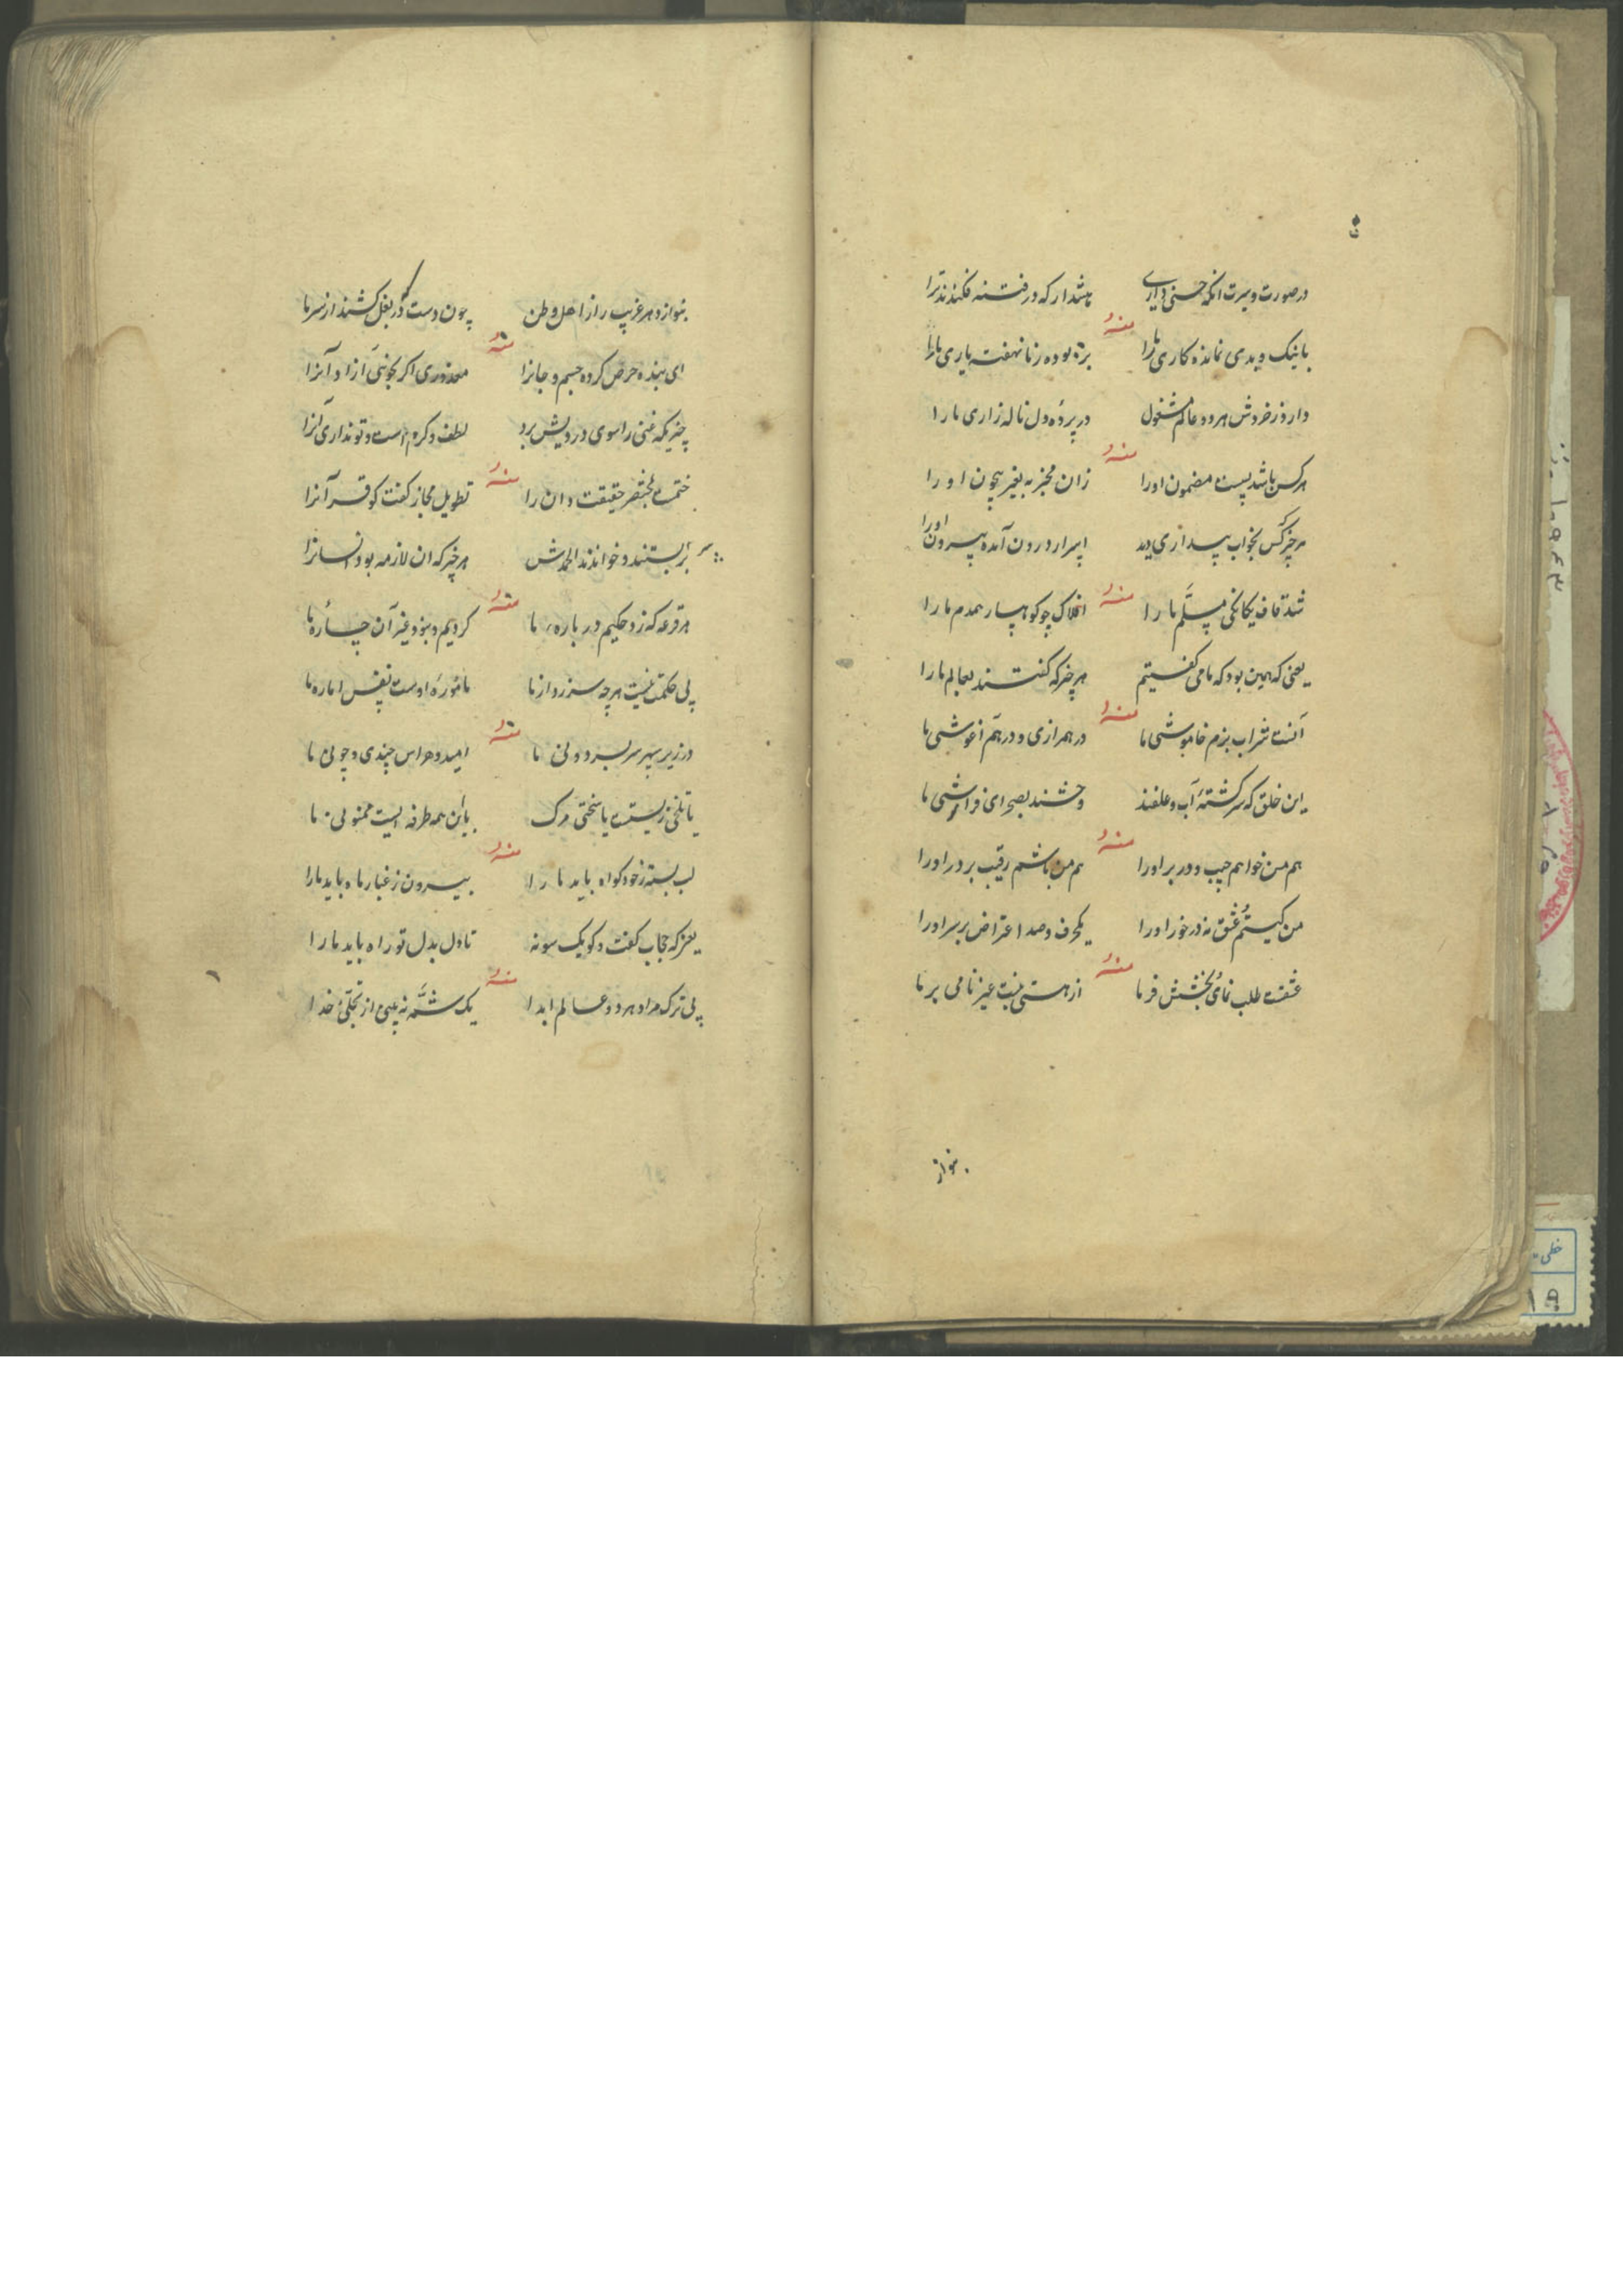 در صورت و سیرت آنکه حسنی داری هشدار که در فتنه فکندند ترا
منه
با نیک و بدی نمانده کاری ما را بوده ز ما نهفته یاری ما را
دارد ز خروش هر دو عالم مشغول در پرده دل ناله زاری ما را
منه
هر کس باشد پست مضمون او را زان مخبر به بغیر بیچون او را
هر چیز کس بخواب بیداری دید اسرار درون آمده بیرون او را
منه
شد قاف یکانکی مسلم ما را افلاک چو کوهسار همدم ما را
یعنی که همین بود که ما می گفتیم هر چیز که گفتند بعالم ما را
منه
آنست شراب بزم خاموشی ما در همرازی و در هم آغوشی ما
این خلق که سرگشته آب و علفند وحشند بصحرای فراموشی ما
منه
هم من خواهم حبیب و در بر او را هم من باشم رقیب بر در او را
من کیستم عشق نه در خور او را یکحرف و صد اعتراض بر سر او را
منه
عشقت طلب نمای بخشش فرما از هستی نیست غیر نامی بر ما
بنواز
بنوازد هر غریب را ز اهل وطن چون دوست در بغل کشند از سر ما
منه
ای بنده حرص کرده جسم و جانرا معذوری اگر نجوئی آزاد آنرا
چیزیکه غنی را سوی درویش برد لطف و کرم است و تو نداری آنرا
منه
ختمست مختصر حقیقت دان را تطویل مجاز گفت کو قرآنرا
بر بستند و خواندند الحمدش هر چیز که ان لازمه بود انسانرا
منه
هر قرعه که زد حکیم در باره ما کردیم و نبود غیر آن چاره ما
بی حکمت نیست هر چه سر زد از ما ماموره اوست نفس اماره ما
منه
در زیر سپهر سر بسر دونی ما امید و هراس چندی و چونی ما
یا تلخی زیست یا سختی مرک با این همه طرفه ایست ممنونی ما
منه
لب بسته ز خود کواه باید ما را بیرون ز غبار ماه باید ما را
بعز که حجاب گفت و کو یک سو نه تا دل بدل تو راه باید ما را
منه
بی ترک مراد هر دو عالم ابدا یک شمه نه بینی از تجلی خدا